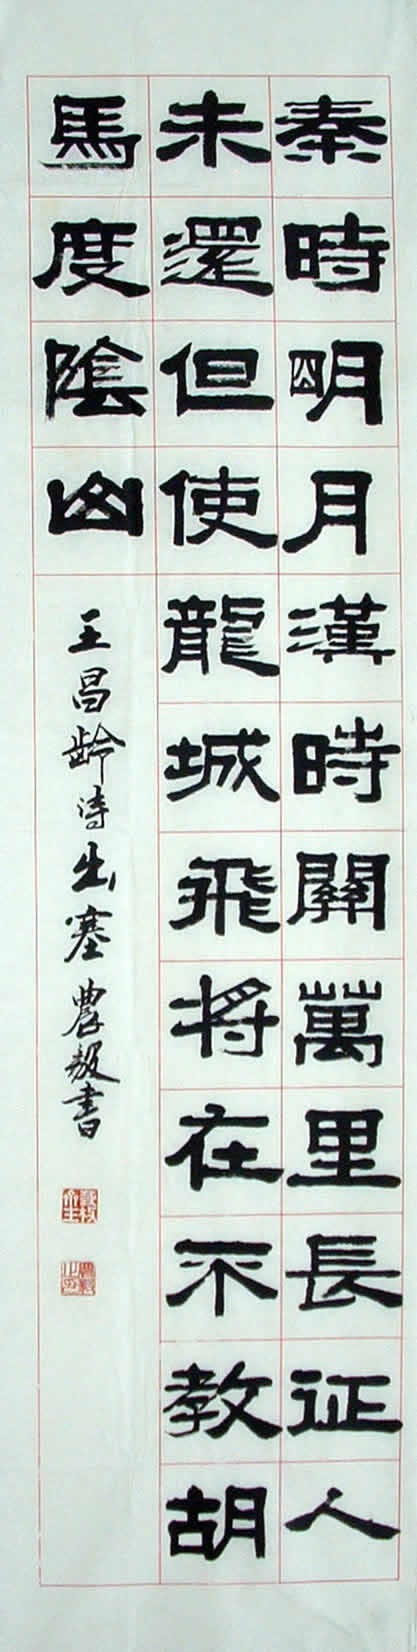 秦時明月漢時關萬里長征人
未還但使龍城飛将在不教胡
馬度陰山
王昌齡诗出塞農毅書